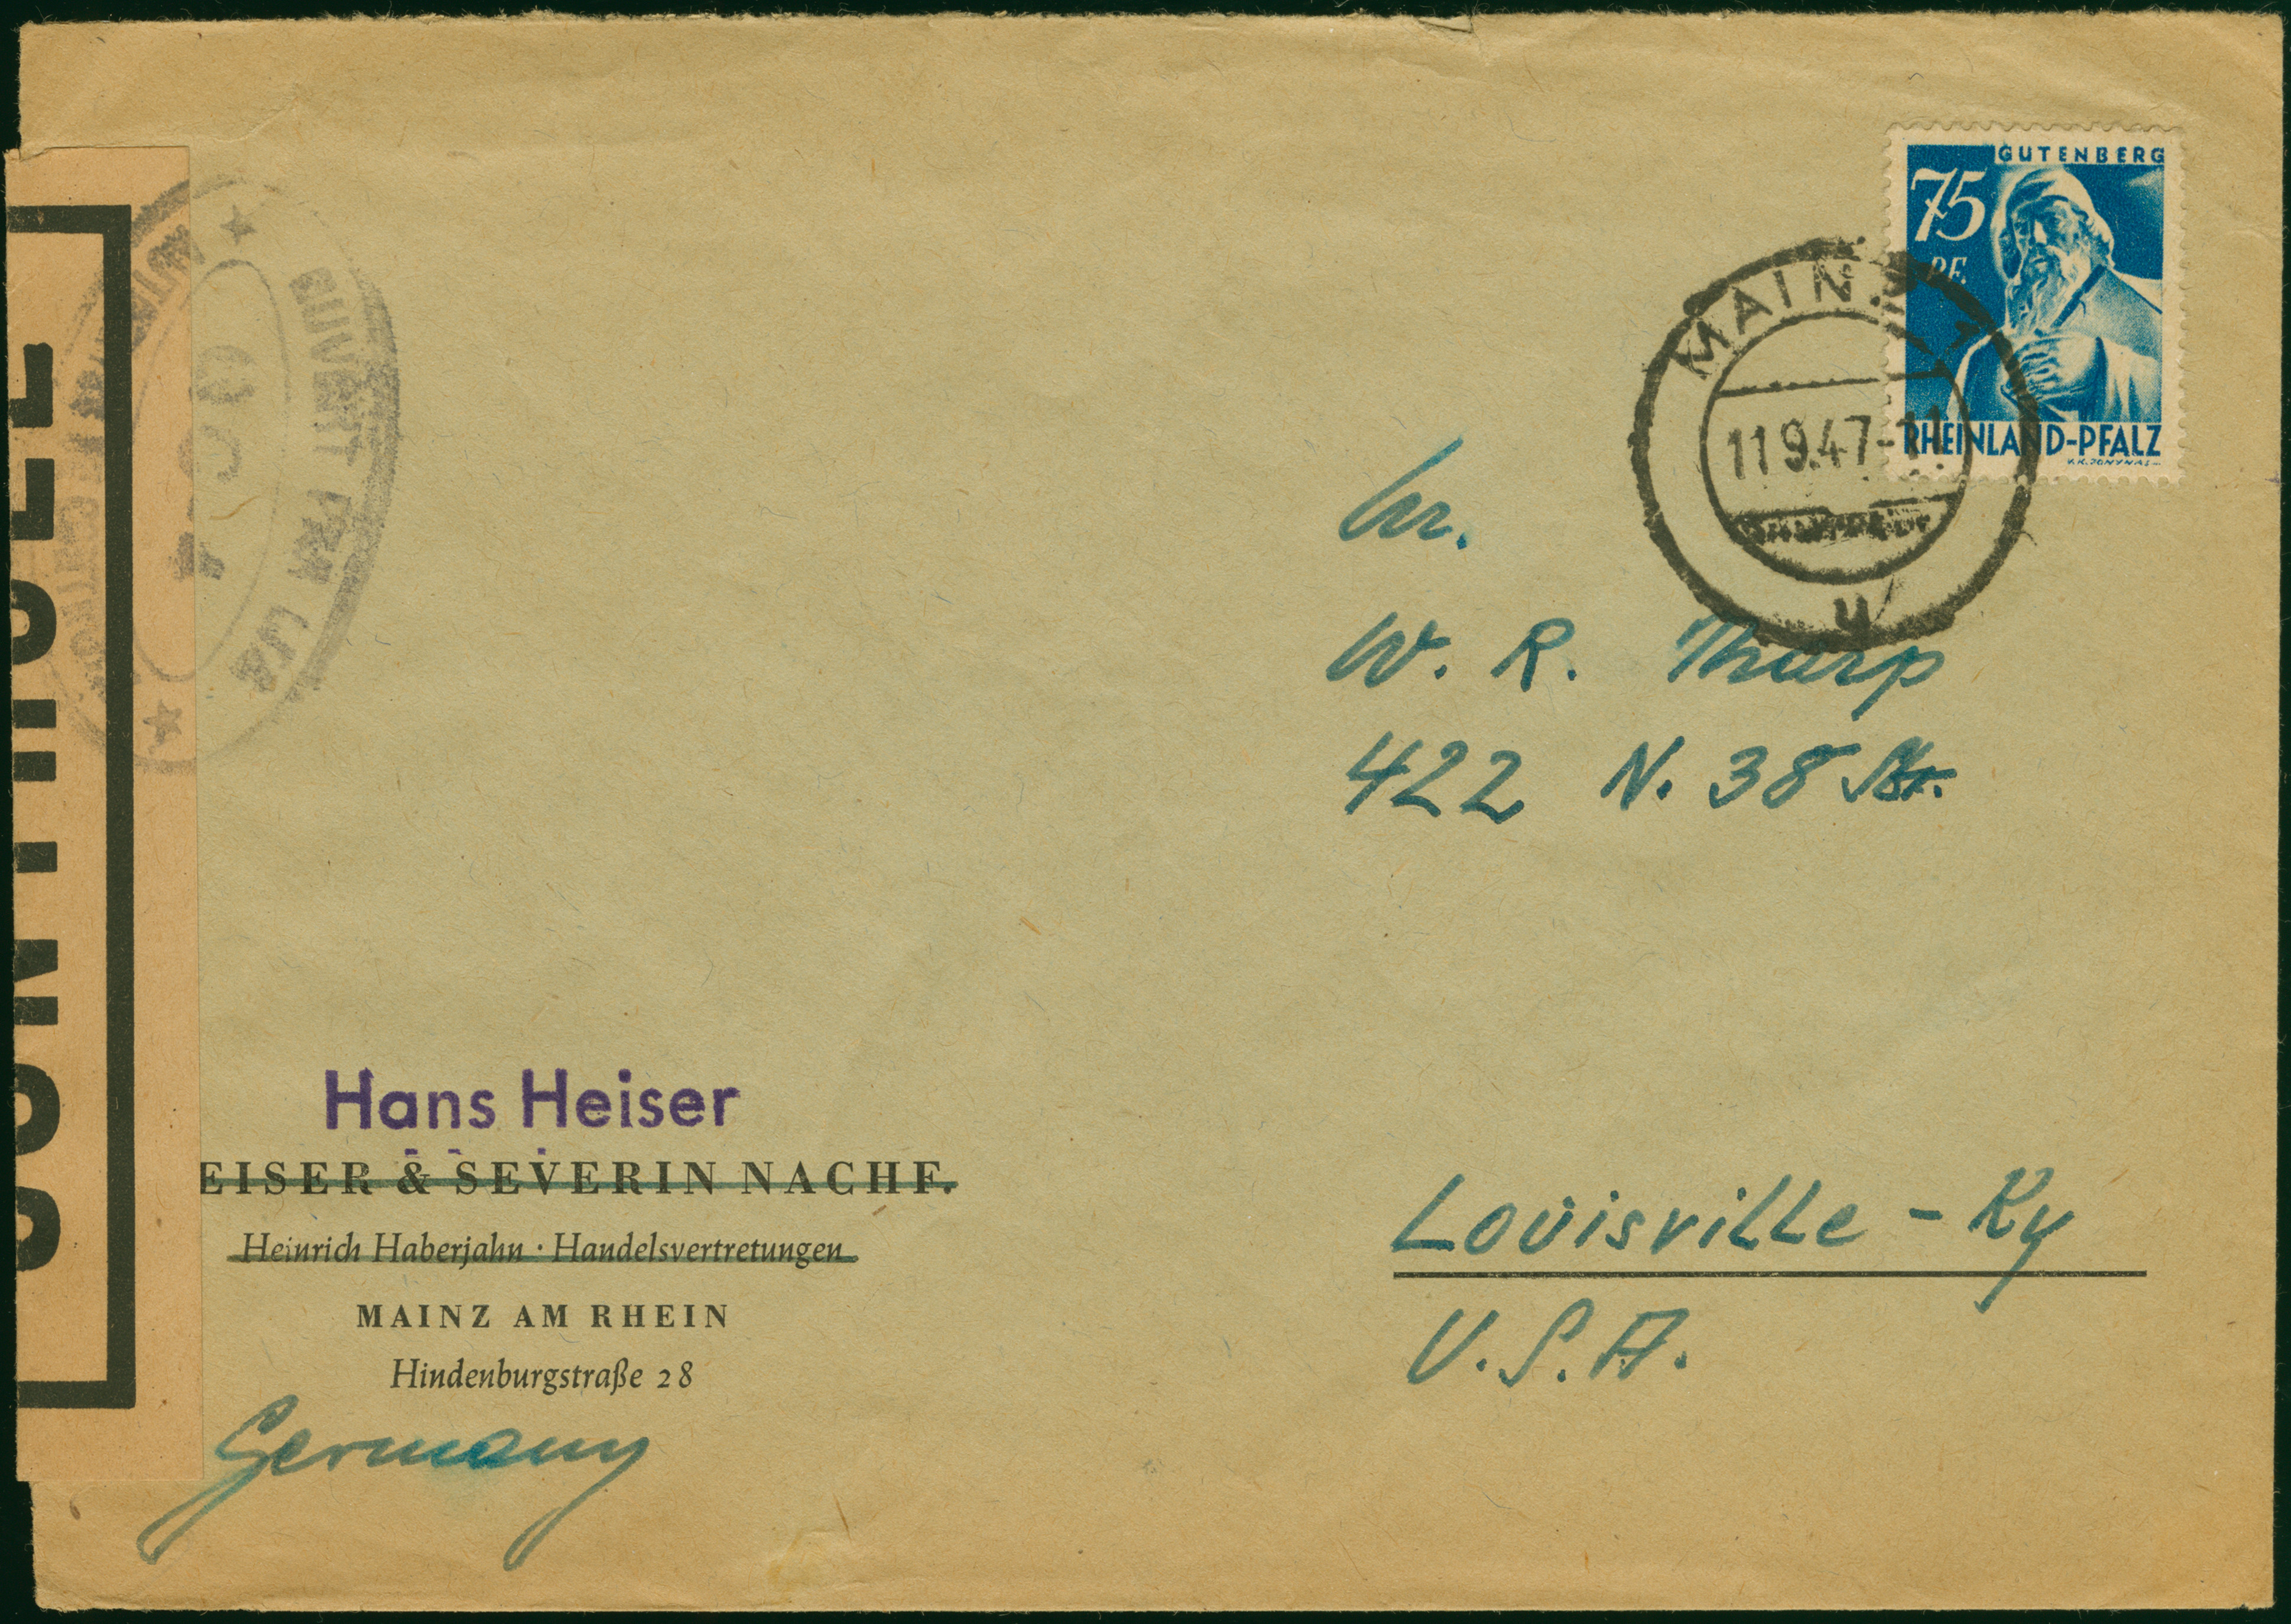 GUTENBERG
75
PF.
RHEINLAND-PFALZ
V.K. JONYNAS
MAINZ 1
11 9.47-11
y
OUVERT PAR LES
CONTROLE
W. R. Tharp
422 N. 38 Str.
Louisville - Ky
U.S.A.
Hans Heiser
EISER & SEVERIN NACHF.
Heinrich Haberjahn · Handelsvertretungen
MAINZ AM RHEIN
Hindenburgstraße 28
Germany